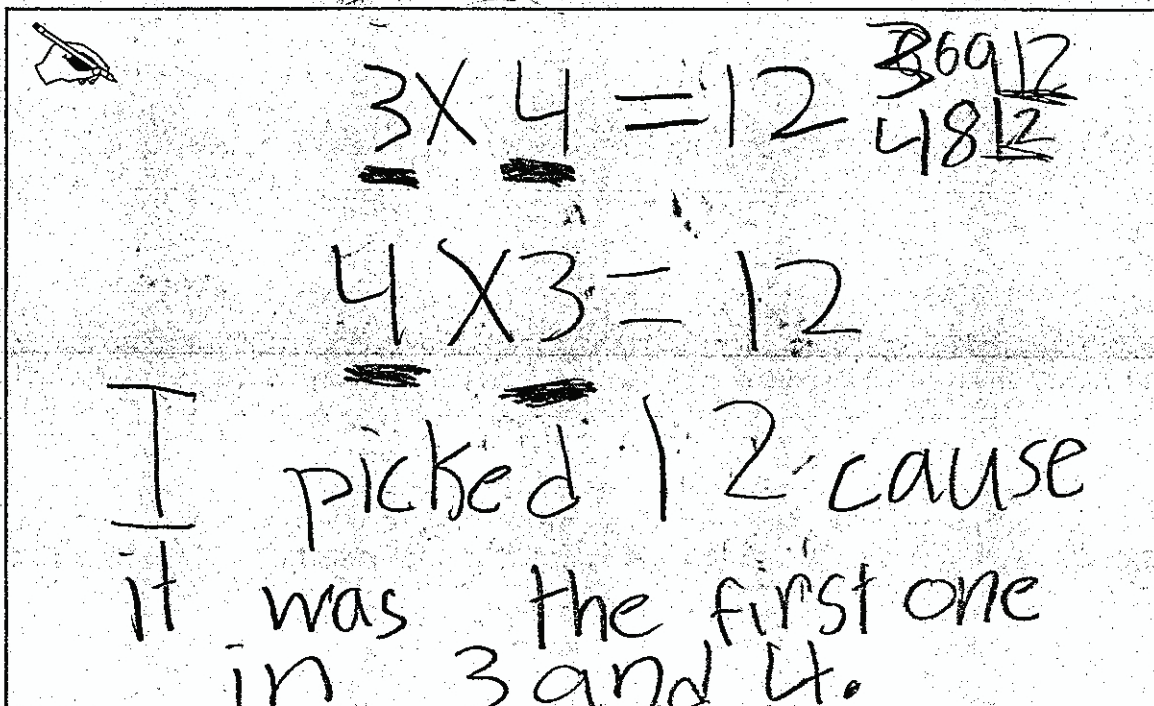 3 x 4 = 12
3 6 9 12
4 8 12
4 x 3 = 12
I picked 12 cause
it was the first one
in 3 and 4.